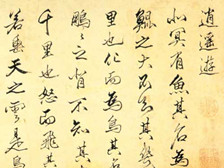 逍遥游
北冥有魚其名為
鯤之大不知其幾
里也化而為鳥其
鵬之背不知其
千里也怒而飛其
若垂天之雲是鳥